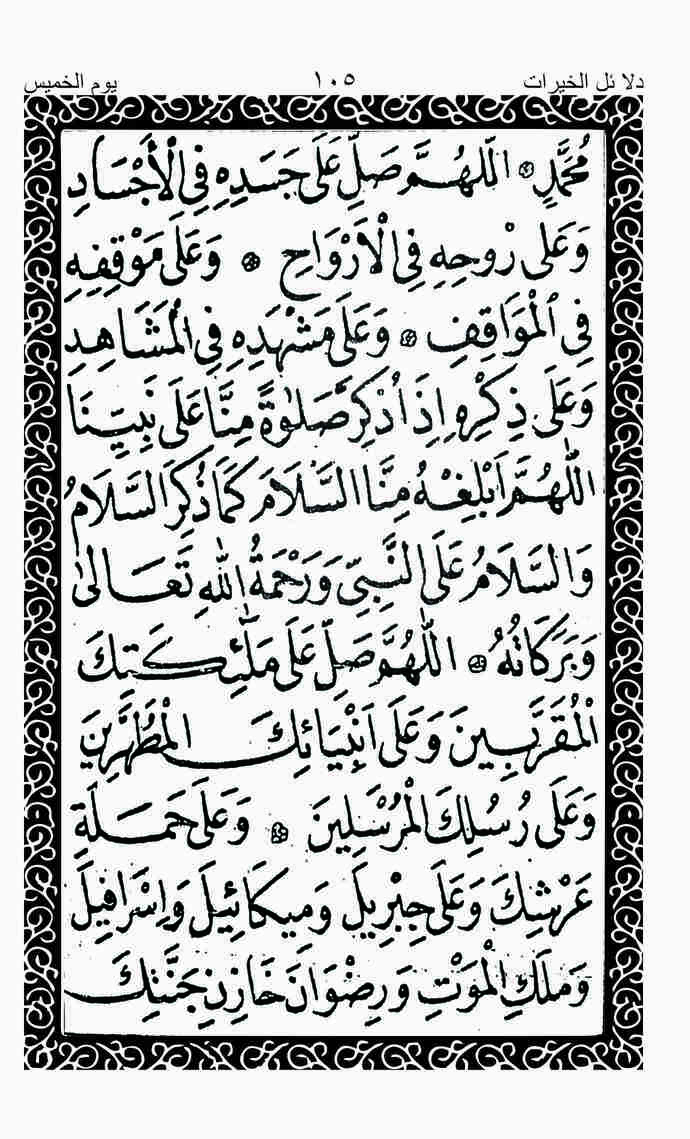 دلائل الخيرات ١٠٥ يوم الخميس
مُحَمَّدٍ اَللّٰهُمَّ صَلِّ عَلَى جَسَدِهِ فِي الْأَجْسَادِ
وَعَلَى رُوحِهِ فِي الْأَرْوَاحِ وَعَلَى مَوْقِفِهِ
فِي الْمَوَاقِفِ وَعَلَى مَشْهَدِهِ فِي الْمَشَاهِدِ
وَعَلَى ذِكْرِهِ اِذَا ذُكِرَ صَلٰوةً مِنَّا عَلَى نَبِيِّنَا
اَللّٰهُمَّ اَبْلِغْهُ مِنَّا السَّلَامَ كَمَا ذُكِرَ السَّلَامُ
وَالسَّلَامُ عَلَى النَّبِيِّ وَرَحْمَةُ اللّٰهِ تَعَالىٰ
وَبَرَكَاتُهُ اَللّٰهُمَّ صَلِّ عَلَى مَلٰئِكَتِكَ
الْمُقَرَّبِينَ وَعَلَى اَنْبِيَائِكَ الْمُطَهَّرِينَ
وَعَلَى رُسُلِكَ الْمُرْسَلِينَ وَعَلَى حَمَلَةِ
عَرْشِكَ وَعَلَى جِبْرِيلَ وَمِيكَائِيلَ وَاِسْرَافِيلَ
وَمَلَكِ الْمَوْتِ وَرِضْوَانَ خَازِنِ جَنَّتِكَ